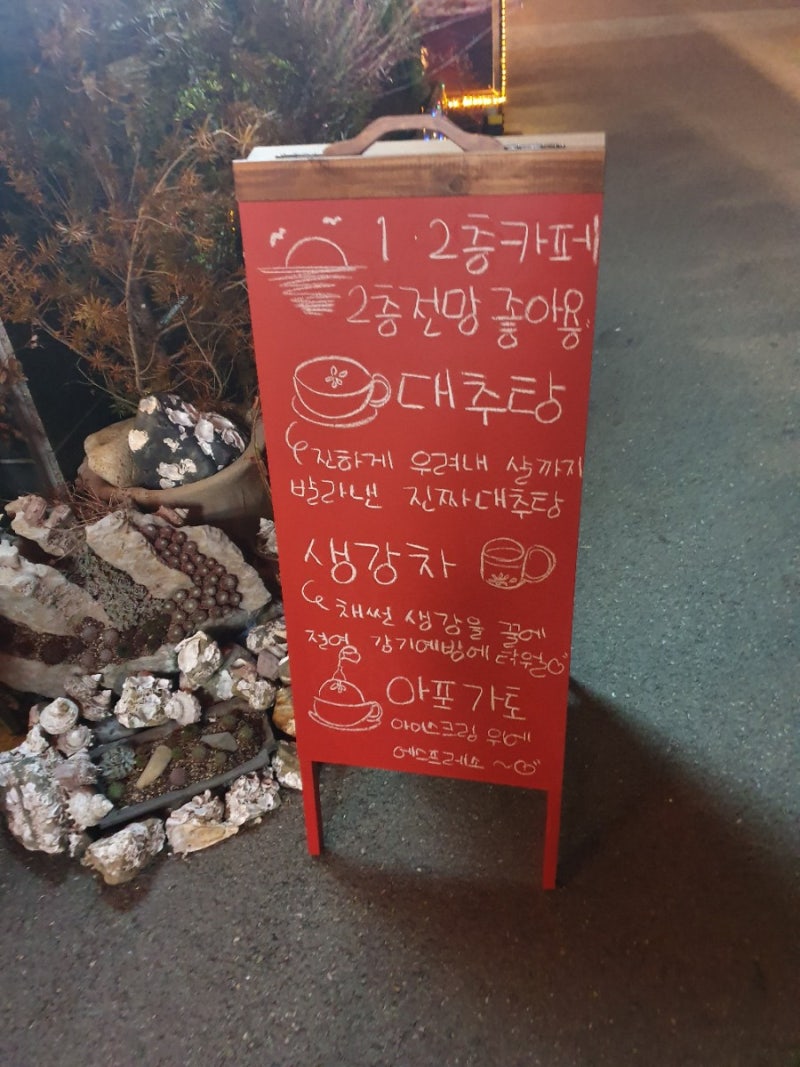 1·2층카페
2층전망 좋아용
대추탕
진하게 우려내 살까지
발라낸 진짜대추탕
생강차
채썬 생강을 꿀에
절여 감기예방에 탁월
아포가토
아이스크림 위에
에스프레소~